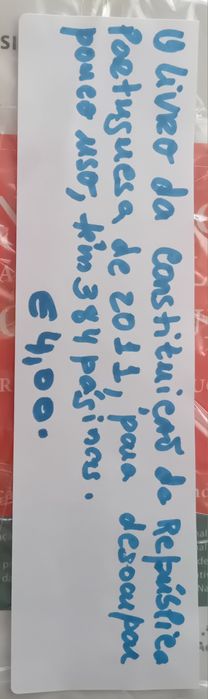 O livro da Constituição da República
Portuguesa de 2011, para desocupar
pouco uso, têm 384 páginas.
€4,00.